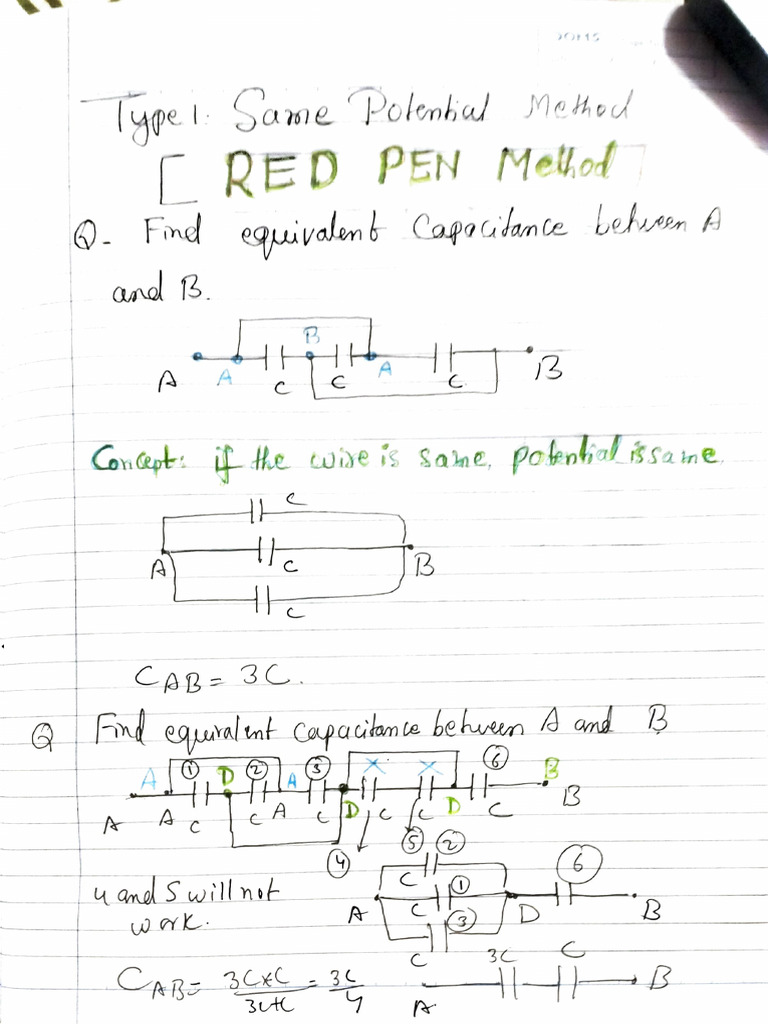 Type 1: Same Potential Method
[ RED PEN Method
Q- Find equivalent Capacitance between A
and B.
B
A A C C A C B
Concept: if the wire is same, potential is same.
C
A C B
C
C AB = 3C.
Q Find equivalent capacitance between A and B
A ① D ② A ③ × × ⑥ B
A A C C A C D C C D C B
④ ⑤ ②
4 and 5 will not
work.
C ① ⑥
A C ③ D B
C 3C C
C AB = 3C×C / 3C+C = 3C / 4
A B